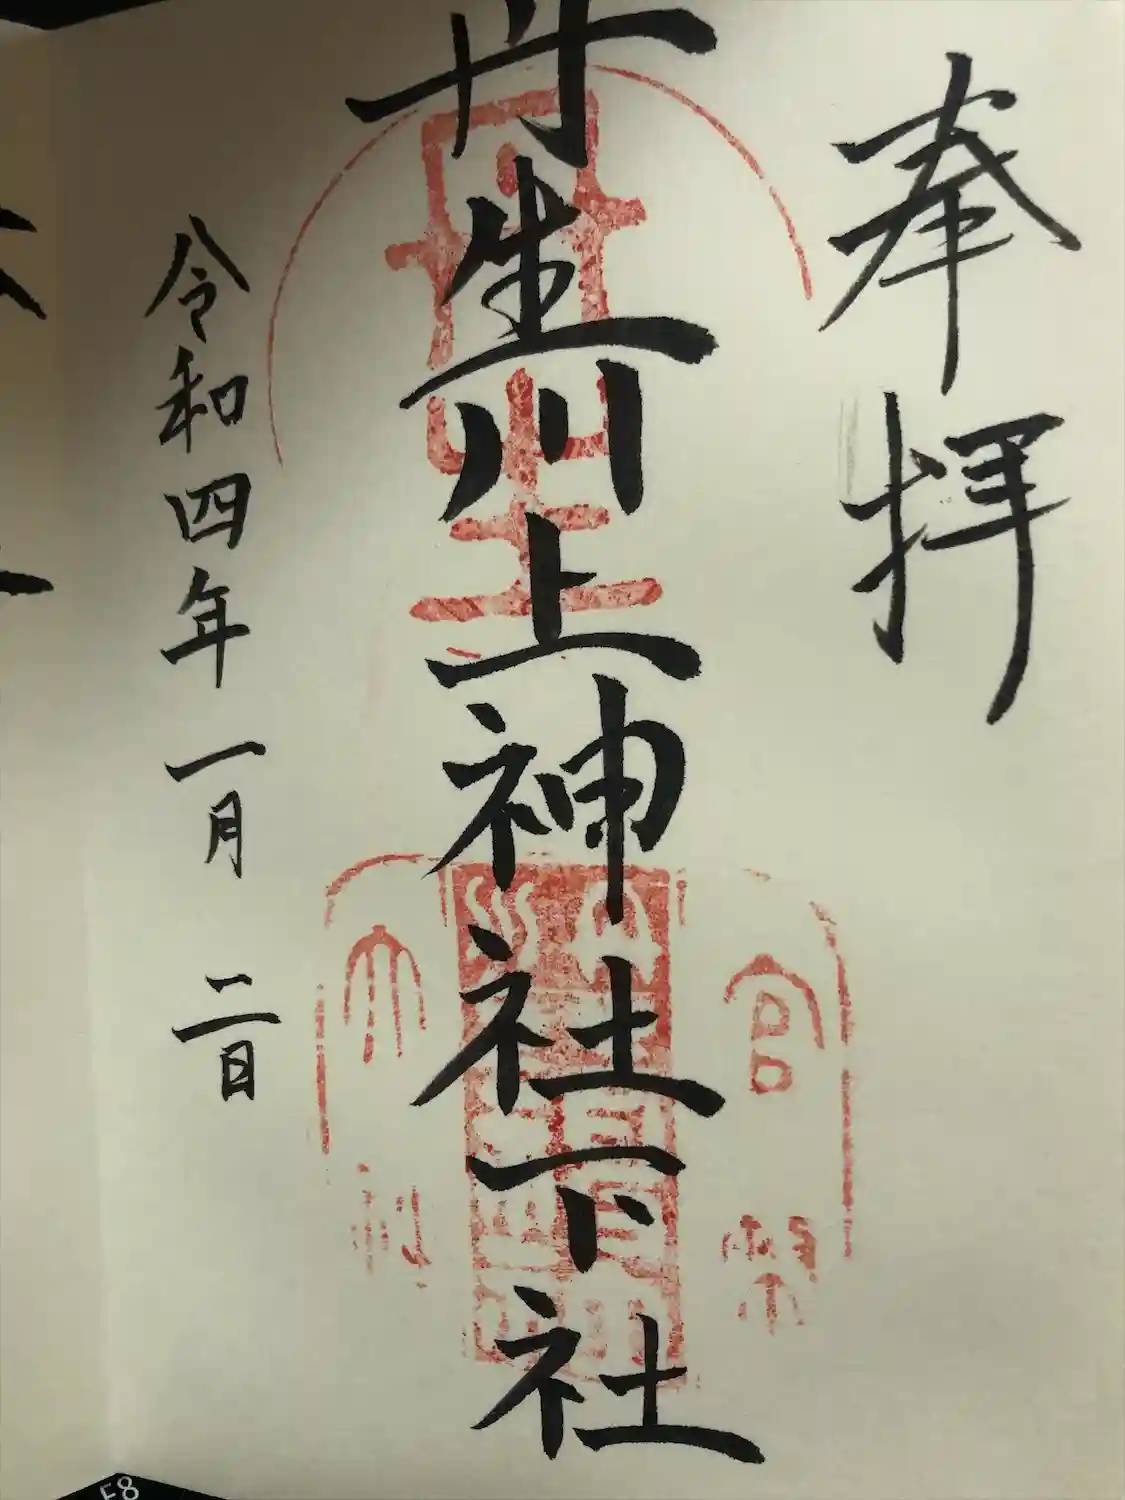 奉拝
丹生川上神社下社
令和四年一月二日
F8